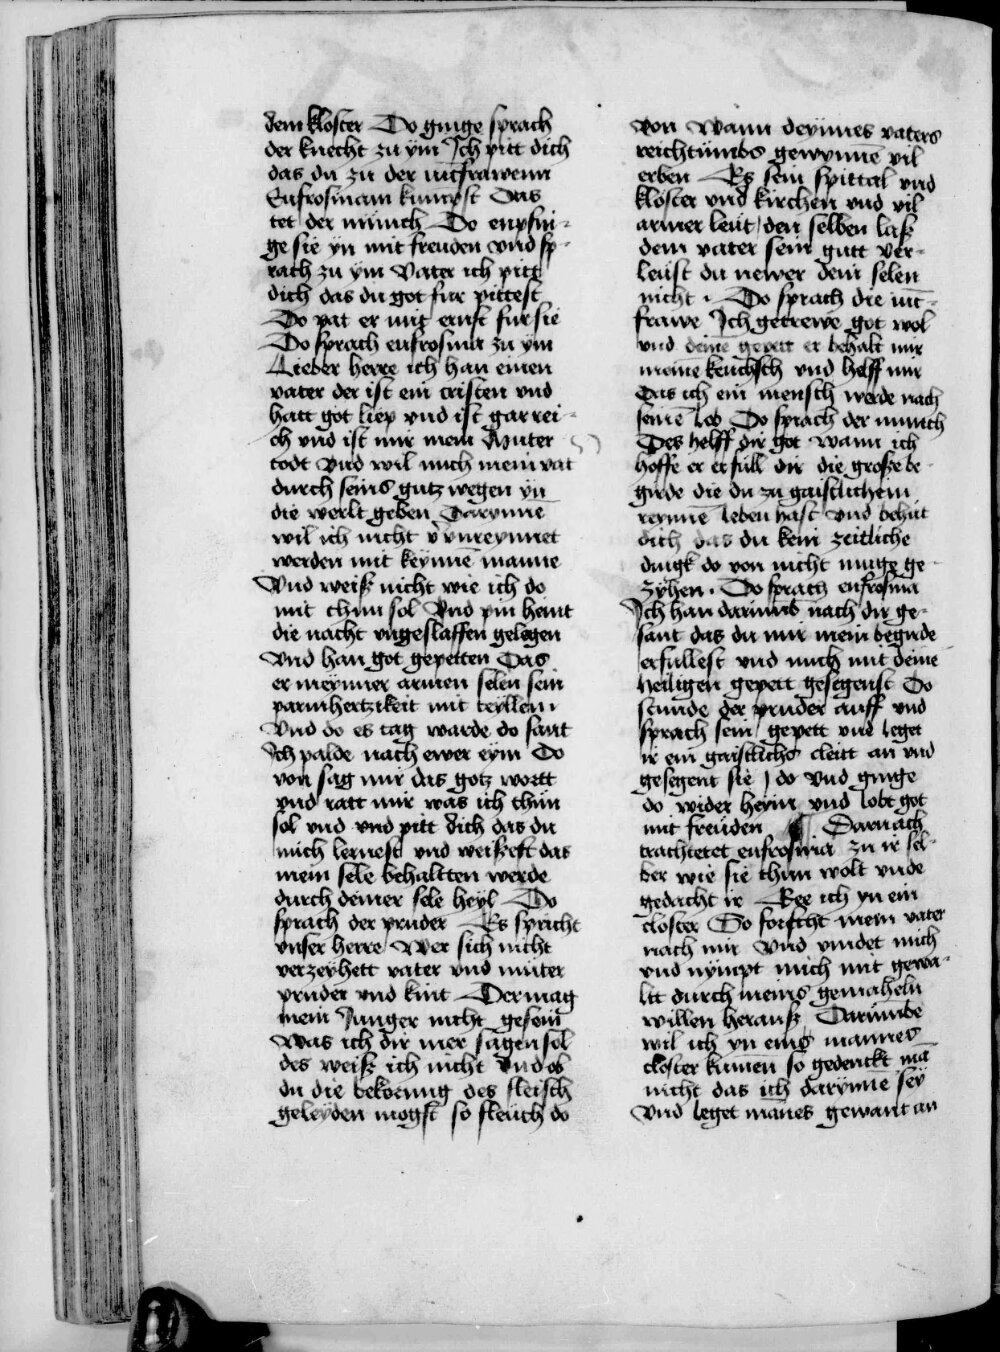 dem kloster Do ginge sprach
der knecht zu ym Ich pitt dich
das du zu der iũcfrawenn
Eufrosinam kumpst Das
tet der münch Do enpfin-
ge sie yn mit freuden vnd sp-
rach zu ym Vater ich pitt
dich das du got fur pittest
Do pat er mit ernst fur sie
Do sprach eufrosina zu ym
Lieber herre ich han einen
vater der ist ein cristen vnd
hatt got liep vnd ist gar rei-
ch vnd ist mir mein Muter
todt Vnd wil mich mein vat
durch seins gutz wegen yn
die werlt geben Darynnē
wil ich nicht vermeynnet
werden mit keynnē manne
Vnd weiß nicht wie ich do
mit thun sol Vnd pin heint
die nacht vngeslaffen gelegen
Vnd han got gepetten Das
er meynner armen selen sein
parmhertzikeit mit teyllenn
Vnd do es tag warde do sant
Ich palde nach ewer eym Do
von sag mir das gotz wortt
vnd ratt mir was ich thun
sol vnd vnd pitt dich das du
mich lernest vnd weißest das
mein sele behaltten werde
durch deiner sele heyl Do
sprach der pruder Es spricht
vnser herre Wer sich nicht
verzeyhett vater vnd müter
pruder vnd kint Der mag
mein Junger nicht gesein
Was ich dir mer sagen sol
des weiß ich nicht Vnd ob
du die bekorung des fleisch
geleyden mogst so fleuch do
von Wann deynnes vaters
reichtümbs gewynnē vil
erben Es sein spittal vnd
klöster vnd kirchen vnd vil
armer leut / den selben laß
dem vater sein gutt Ver-
leust du newer dein selen
nicht . Do sprach die iūc-
frawe Ich getrewe got wol
vnd deinē gepett er behalt mir
meinē keuchsch vnd helff mir
Das ich ein mensch werde nach
seinē lob Do sprach der münch
Des helff dir got Wann ich
hoffe er erfüll dir die große be-
girde die du zu gaistlichem
reynnē leben hast Vnd behut
dich das du kein zeitliche
dingk do von nicht muge ge-
zyhen . Do sprach eufrosina
Ich han darumb nach dir ge-
sant das du mir mein begirde
erfullest vnd mich mit deinē
heiligen gepett gesegenst Do
stunde der pruder auff vnd
sprach sein gepett vnd leget
ir ein gaistlichs cleitt an vnd
gesegent sie / do vnd ginge
do wider heym vnd lobt got
mit freuden ¶ Darnach
trachtetet eufrosina zu ir sel-
ber wie sie thun wolt vnde
gedacht ir Kere ich yn ein
closter So forscht mein vater
nach mir Vnd vindet mich
vnd nympt mich mit gewa-
lt durch meins gemaheln
willen herauß Darumbe
wil ich yn eins mannes
closter kumen so gedenckt mā
nicht das ich darynnē sey
Vnd leget manes gewant an